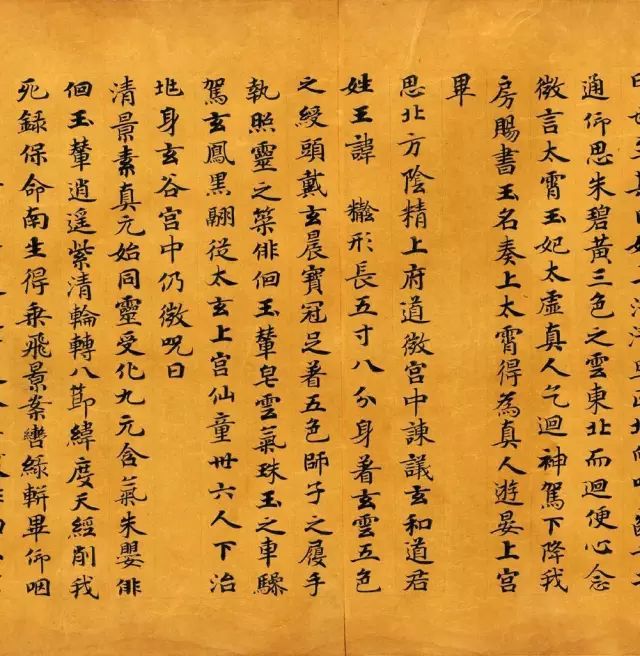 通仰思朱碧黃三色之雲東北而迴便心念
微言太霄玉妃太虛真人乞迴神駕下降我
房賜書玉名奏上太霄得為真人遊晏上宮
畢
思北方陰精上府道微宮中諫議玄和道君
姓王諱 形長五寸八分身著玄雲五色
之綬頭戴玄晨寶冠足著五色師子之履手
執照靈之 俳佪玉輦皂雲氣珠玉之車驂
駕玄鳳黑翮從太玄上宮仙童卅六人下治
兆身玄谷宮中仍微呪曰
清景素真元始同靈受化九元含氣朱嬰俳
佪玉輦逍遥紫清輪轉八節緯度天經削我
死録保命南生得乗飛景案轡綠軿畢仰咽